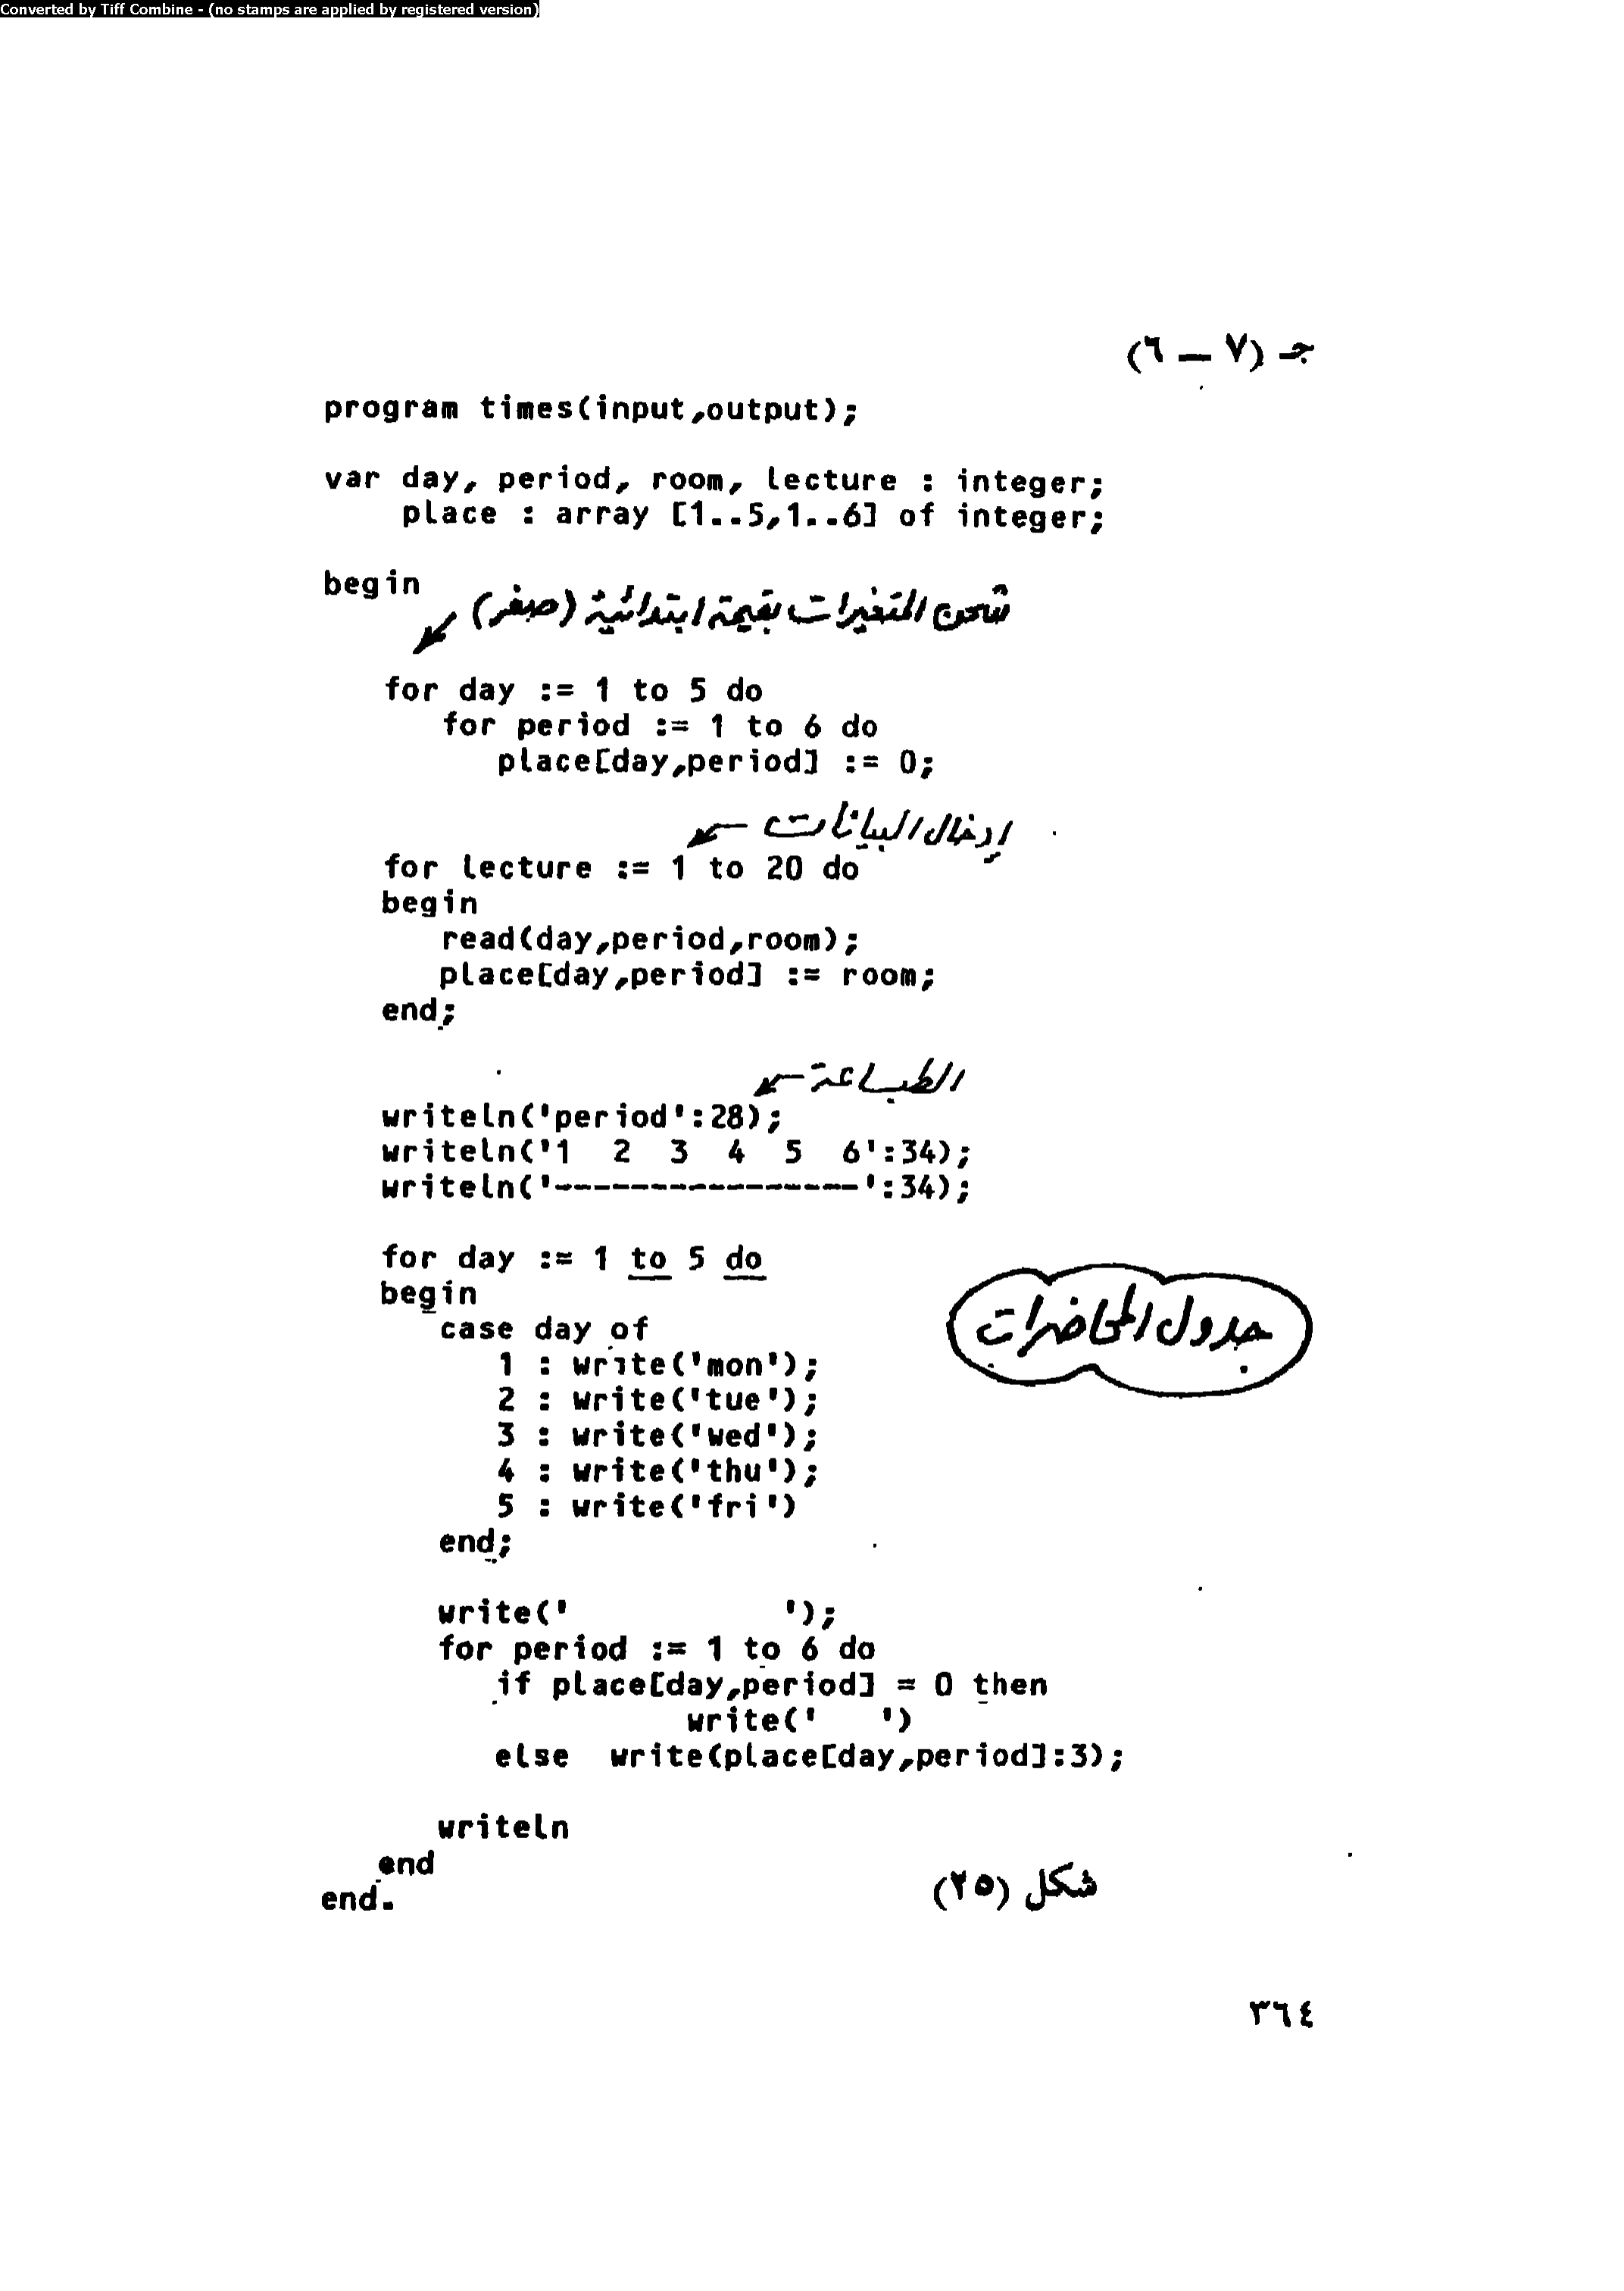 Converted by Tiff Combine - (no stamps are applied by registered version)
جـ (٧ — ٦)
program times(input,output);
var day, period, room, lecture : integer;
    place : array [1..5,1..6] of integer;
begin
شحن المتغيرات بقيمة ابتدائية (صفر)
   for day := 1 to 5 do
      for period := 1 to 6 do
         place[day,period] := 0;
إدخال البيانات
   for lecture := 1 to 20 do
   begin
      read(day,period,room);
      place[day,period] := room;
   end;
الطباعة
   writeln('period':28);
   writeln('1  2  3  4  5  6':34);
   writeln('----------------':34);
   for day := 1 to 5 do
   begin
جدول المحاضرات
      case day of
         1 : write('mon');
         2 : write('tue');
         3 : write('wed');
         4 : write('thu');
         5 : write('fri')
      end;
      write('           ');
      for period := 1 to 6 do
         if place[day,period] = 0 then
                   write('   ')
         else  write(place[day,period]:3);
      writeln
   end
end.
شكل (٢٥)
٣٦٤